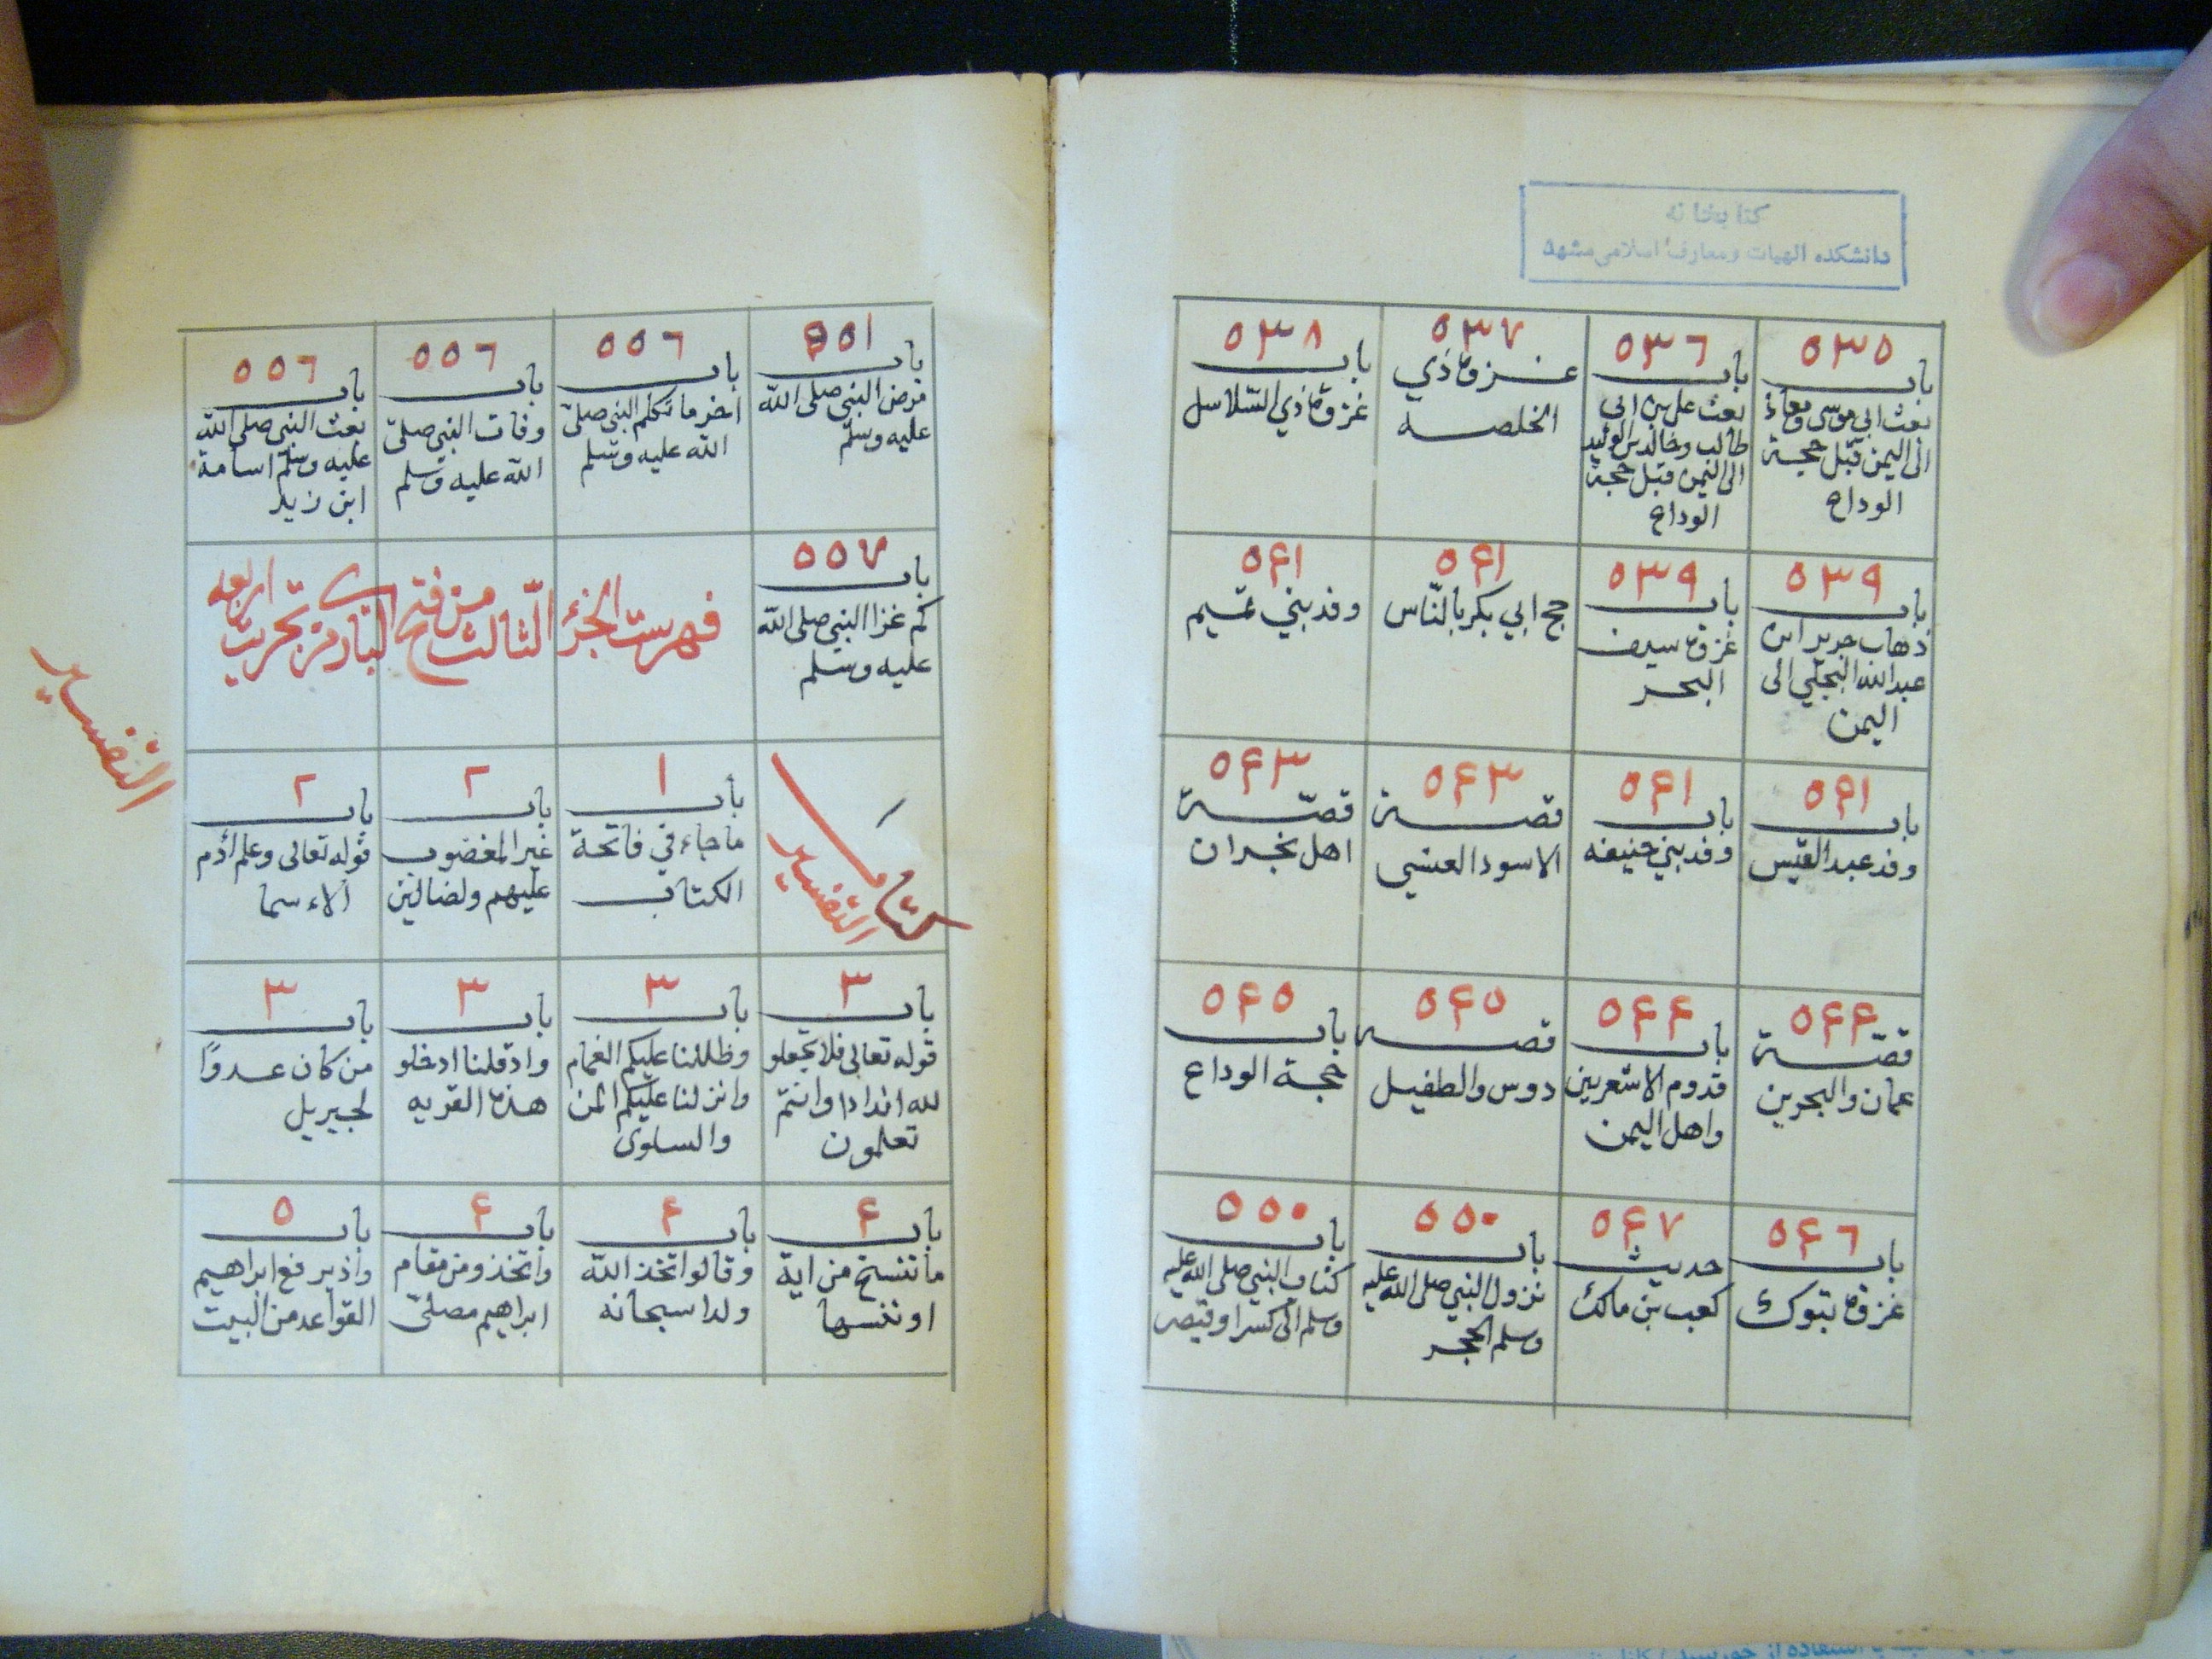 كتابخانه
دانشکده الهیات ومعارف اسلامی مشهد
٥٣٥
باب
بعث ابي موسى ومعاذ
الى اليمن قبل حجة
الوداع
٥٣٦
باب
بعث علي بن ابي
طالب وخالد بن الوليد
الى اليمن قبل حجة
الوداع
٥٣٧
غزوة ذي
الخلصه
٥٣٨
باب
غزوة ذي السلاسل
٥٣٩
باب
ذهاب جرير ابن
عبد الله البجلي الى
اليمن
٥٣٩
باب
غزوة سيف
البحر
٥۴١
حج ابي بكر بالنّاس
٥۴١
وفد بني تميم
٥۴١
باب
وفد عبد القيس
٥۴١
باب
وفد بني حنيفه
٥۴٣
قصة
الاسود العنسي
٥۴٣
قصّة
اهل نجران
٥۴۴
قصّة
عمان والبحرين
٥۴۴
باب
قدوم الاشعريين
واهل اليمن
٥۴٥
قصه
دوس والطفيل
٥۴٥
باب
حجة الوداع
٥۴٦
باب
غزوة تبوك
٥۴٧
حديث
كعب بن مالك
٥٥٠
باب
نزول النبي صلى الله عليه
وسلم الحجر
٥٥٠
باب
كتاب النبي صلى الله عليه
وسلم الى كسرا وقيصر
٥٥١
باب
مرض النبي صلى الله
عليه وسلم
٥٥٦
باب
اخر ما تكلم النبي صلى
الله عليه وسلم
٥٥٦
باب
وفات النبي صلى
الله عليه وسلم
٥٥٦
باب
بعث النبي صلى الله
عليه وسلم اسامة
ابن زيد
٥٥٧
باب
كم غزا النبي صلى الله
عليه وسلم
فهرست الجزء الثالث من فتح الباري من تجريت اربعه
التفسير
كتاب
التفسير
١
باب
ما جاء في فاتحة
الكتاب
٢
باب
غير المغضوب
عليهم ولضالين
٢
باب
قوله تعالى وعلم ادم
الاءسما
٣
باب
قوله تعالى فلا تجعلو
لله اندادا وانتم
تعلمون
٣
باب
وظللنا عليكم الغمام
وانزلنا عليكم المن
والسلوى
٣
باب
واذ قلنا ادخلو
هذه القريه
٣
باب
من كان عدوًا
لجبريل
۴
باب
ما ننسخ من اية
او ننسها
۴
باب
وقالوا اتخذ الله
ولدا سبحانه
۴
باب
واتخذو من مقام
ابراهيم مصلى
٥
باب
واذ يرفع ابراهيم
القواعد من البيت